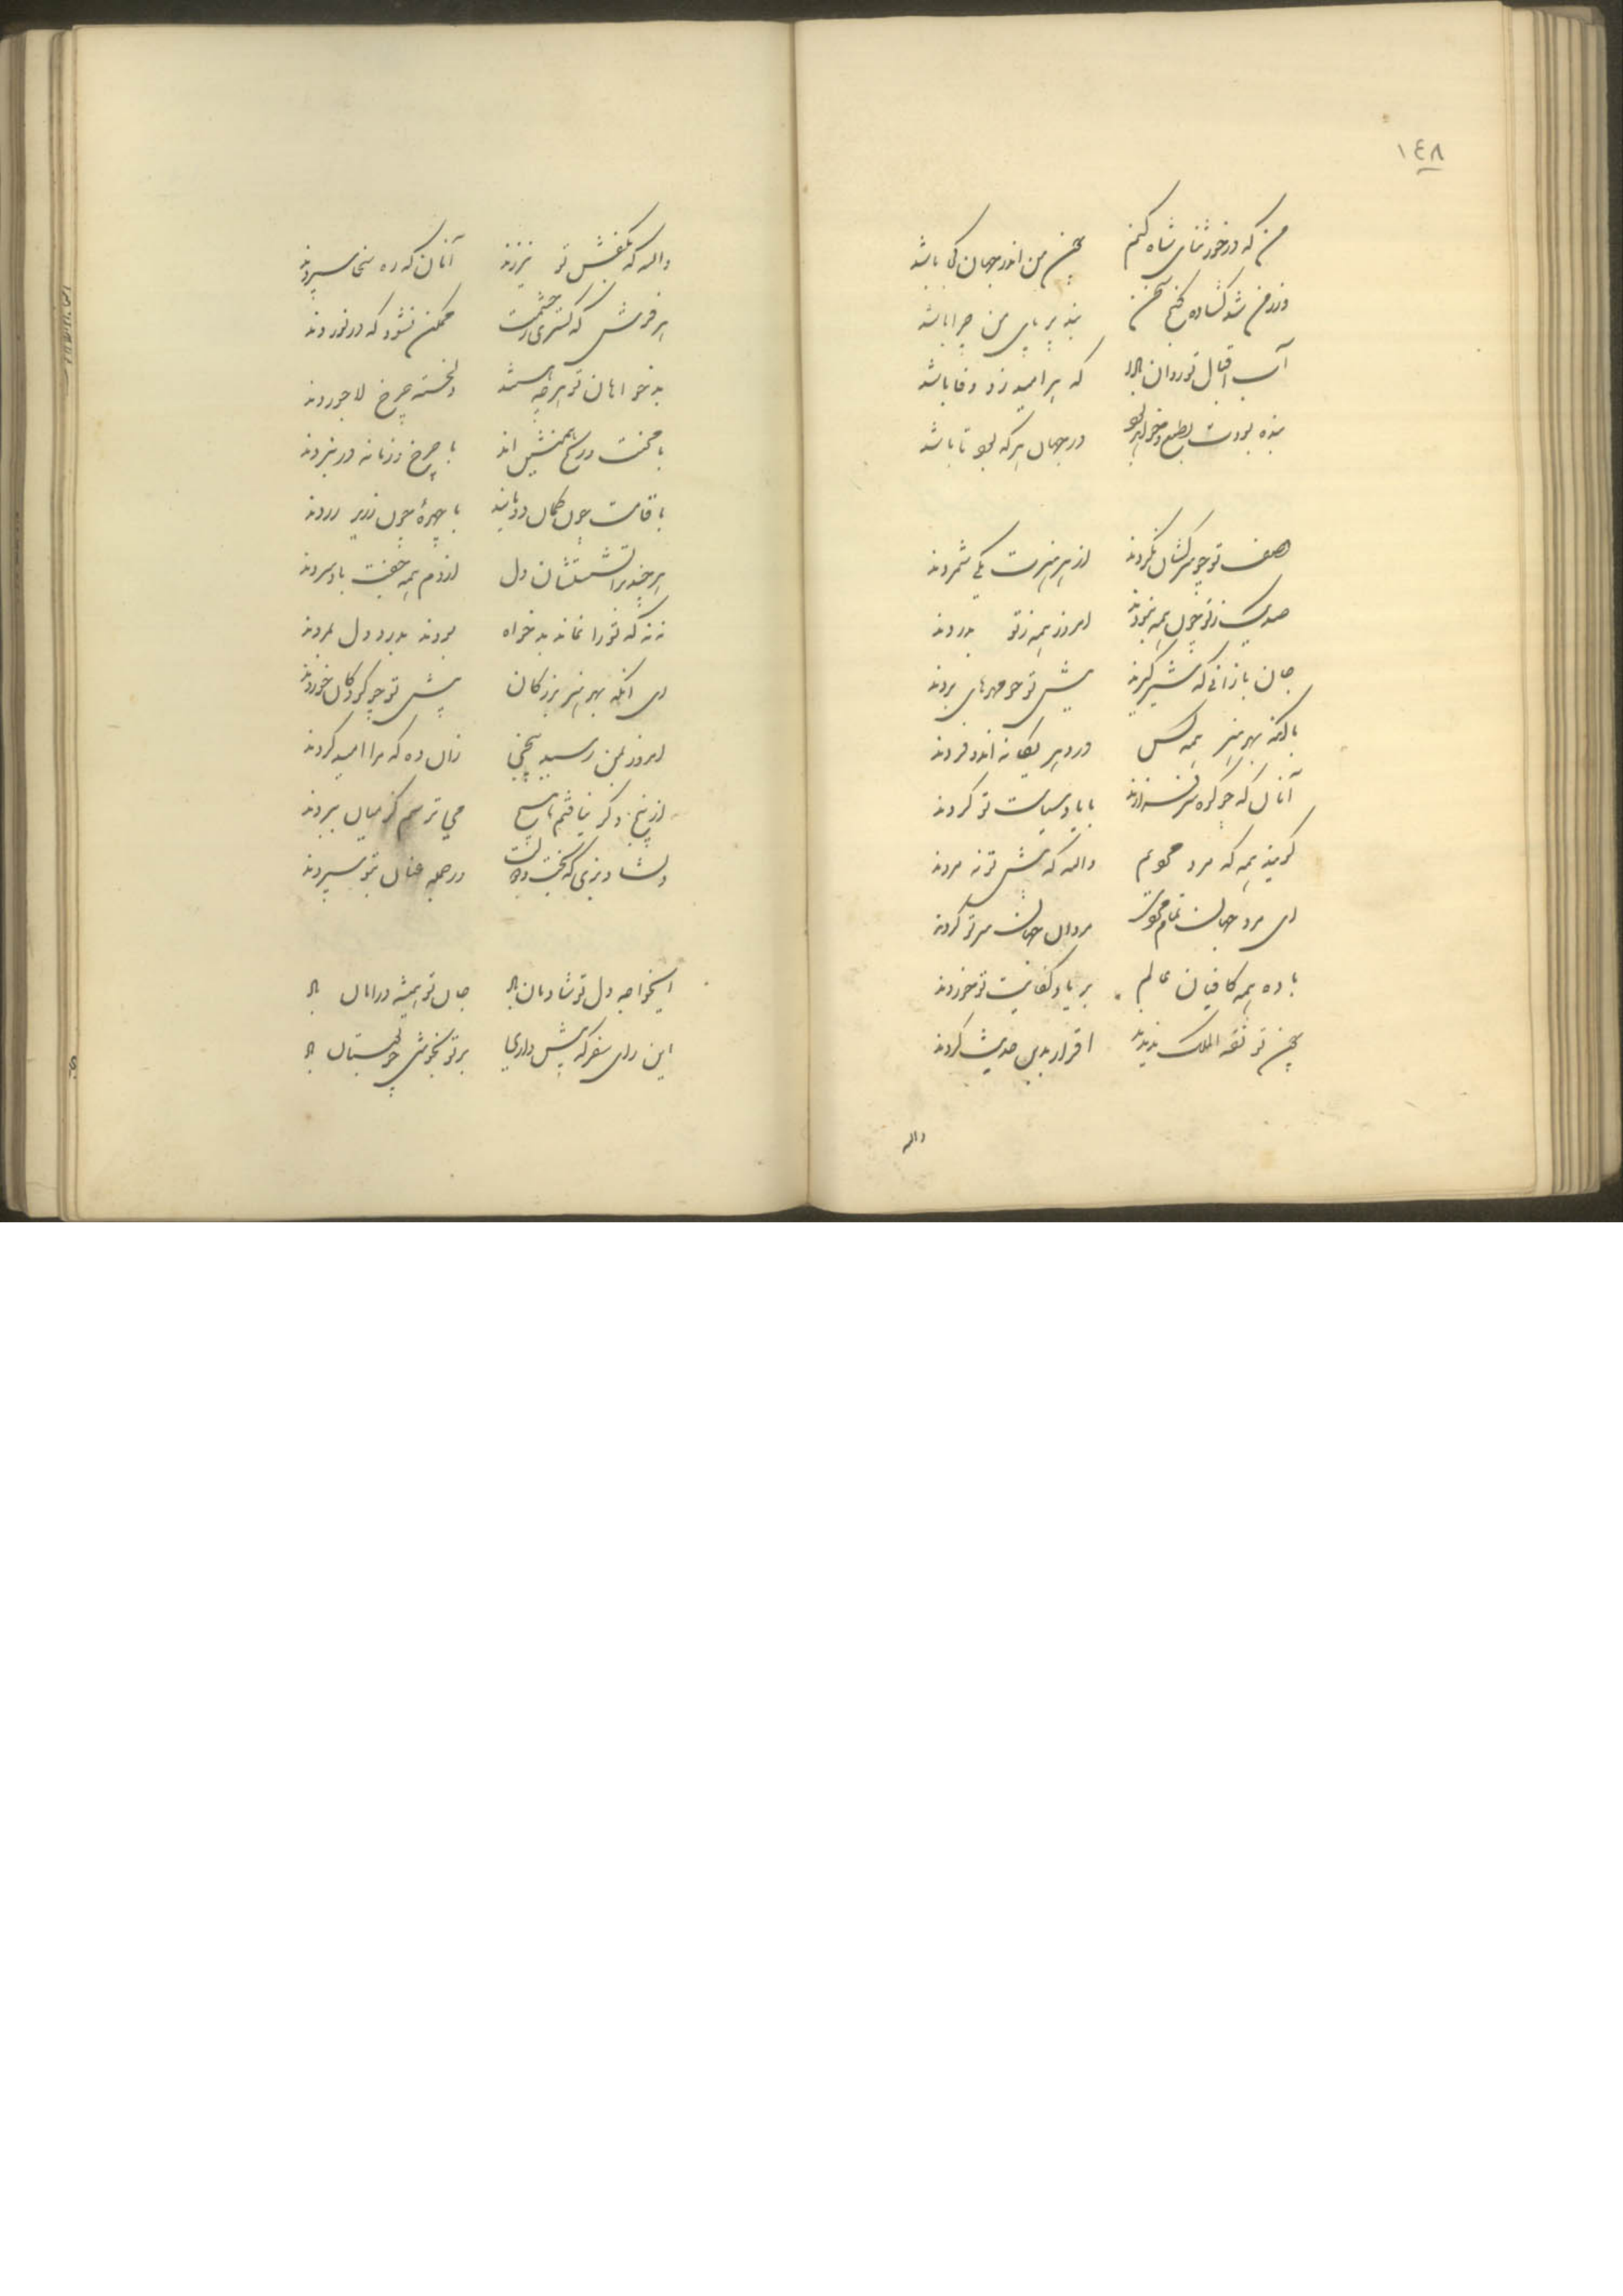 ١٤٨
من که در خور ثنای شاه کنم چون من اندر جهان کی باشد
وز من شد کشاده کنج سخن بند بر پای من چرا باشد
آب اقبال تو روان بادا که بر امید زو وفا باشد
بنده بودت بطبع و خواهد بود در جهان هر که بود تا باشد
وصف تو چو سرکشان بکردند از هر هنرت یکی شمردند
صد یک ز تو چون همه نبودند امروز همه ز تو بدردند
جان بازانی که شیر گیرند پیش تو چو مهرهای بردند
با آنکه بهر هنر همه کس در دهر یکانه اند و فردند
آنان که چو کره سر فرازند با باد سیاست تو کردند
گویند همه که مرد مردیم والله که پیش تو نه مردند
ای مرد جهان تمام مردیت مردان جهانت سر تو کردند
باده همه کافیان عالم بر یاد کفایت تو خوردند
چون تو ثقة الملک ندیدند اقرار بدین حدیث کردند
والله
والله که بکفش تو نیرزند آنان که ره سخا سپردند
هر فرش که کستری ز حشمت ممکن نشود که در نوردند
بدخواهان تو هرچه هستند دلخسته چرخ لاجوردند
با محنت و رنج همنشین اند با چرخ و زمانه در نبردند
با قامت چون کمان دوتایند با چهرهٔ چون زریر زردند
هرچند بر آتشستشان دل از دم همه جفت باد سردند
نه نه که تو را نماند بدخواه بودند بدرد دل بمردند
ای آنکه بهر هنر بزرکان پیش تو چو کودکان خوردند
امروز بمن رسید پنجی زان ده که مرا امید کردند
از پنج دکر نیافتم هیچ می ترسم کز میان ببردند
دلشاد بزی که بخت و دولت در جمله عنان بتو سپردند
ایخواجه دل تو شادمان باد جان تو همیشه در امان باد
این رای سفر که پیش داری بر تو بخوشی چو بوستان باد